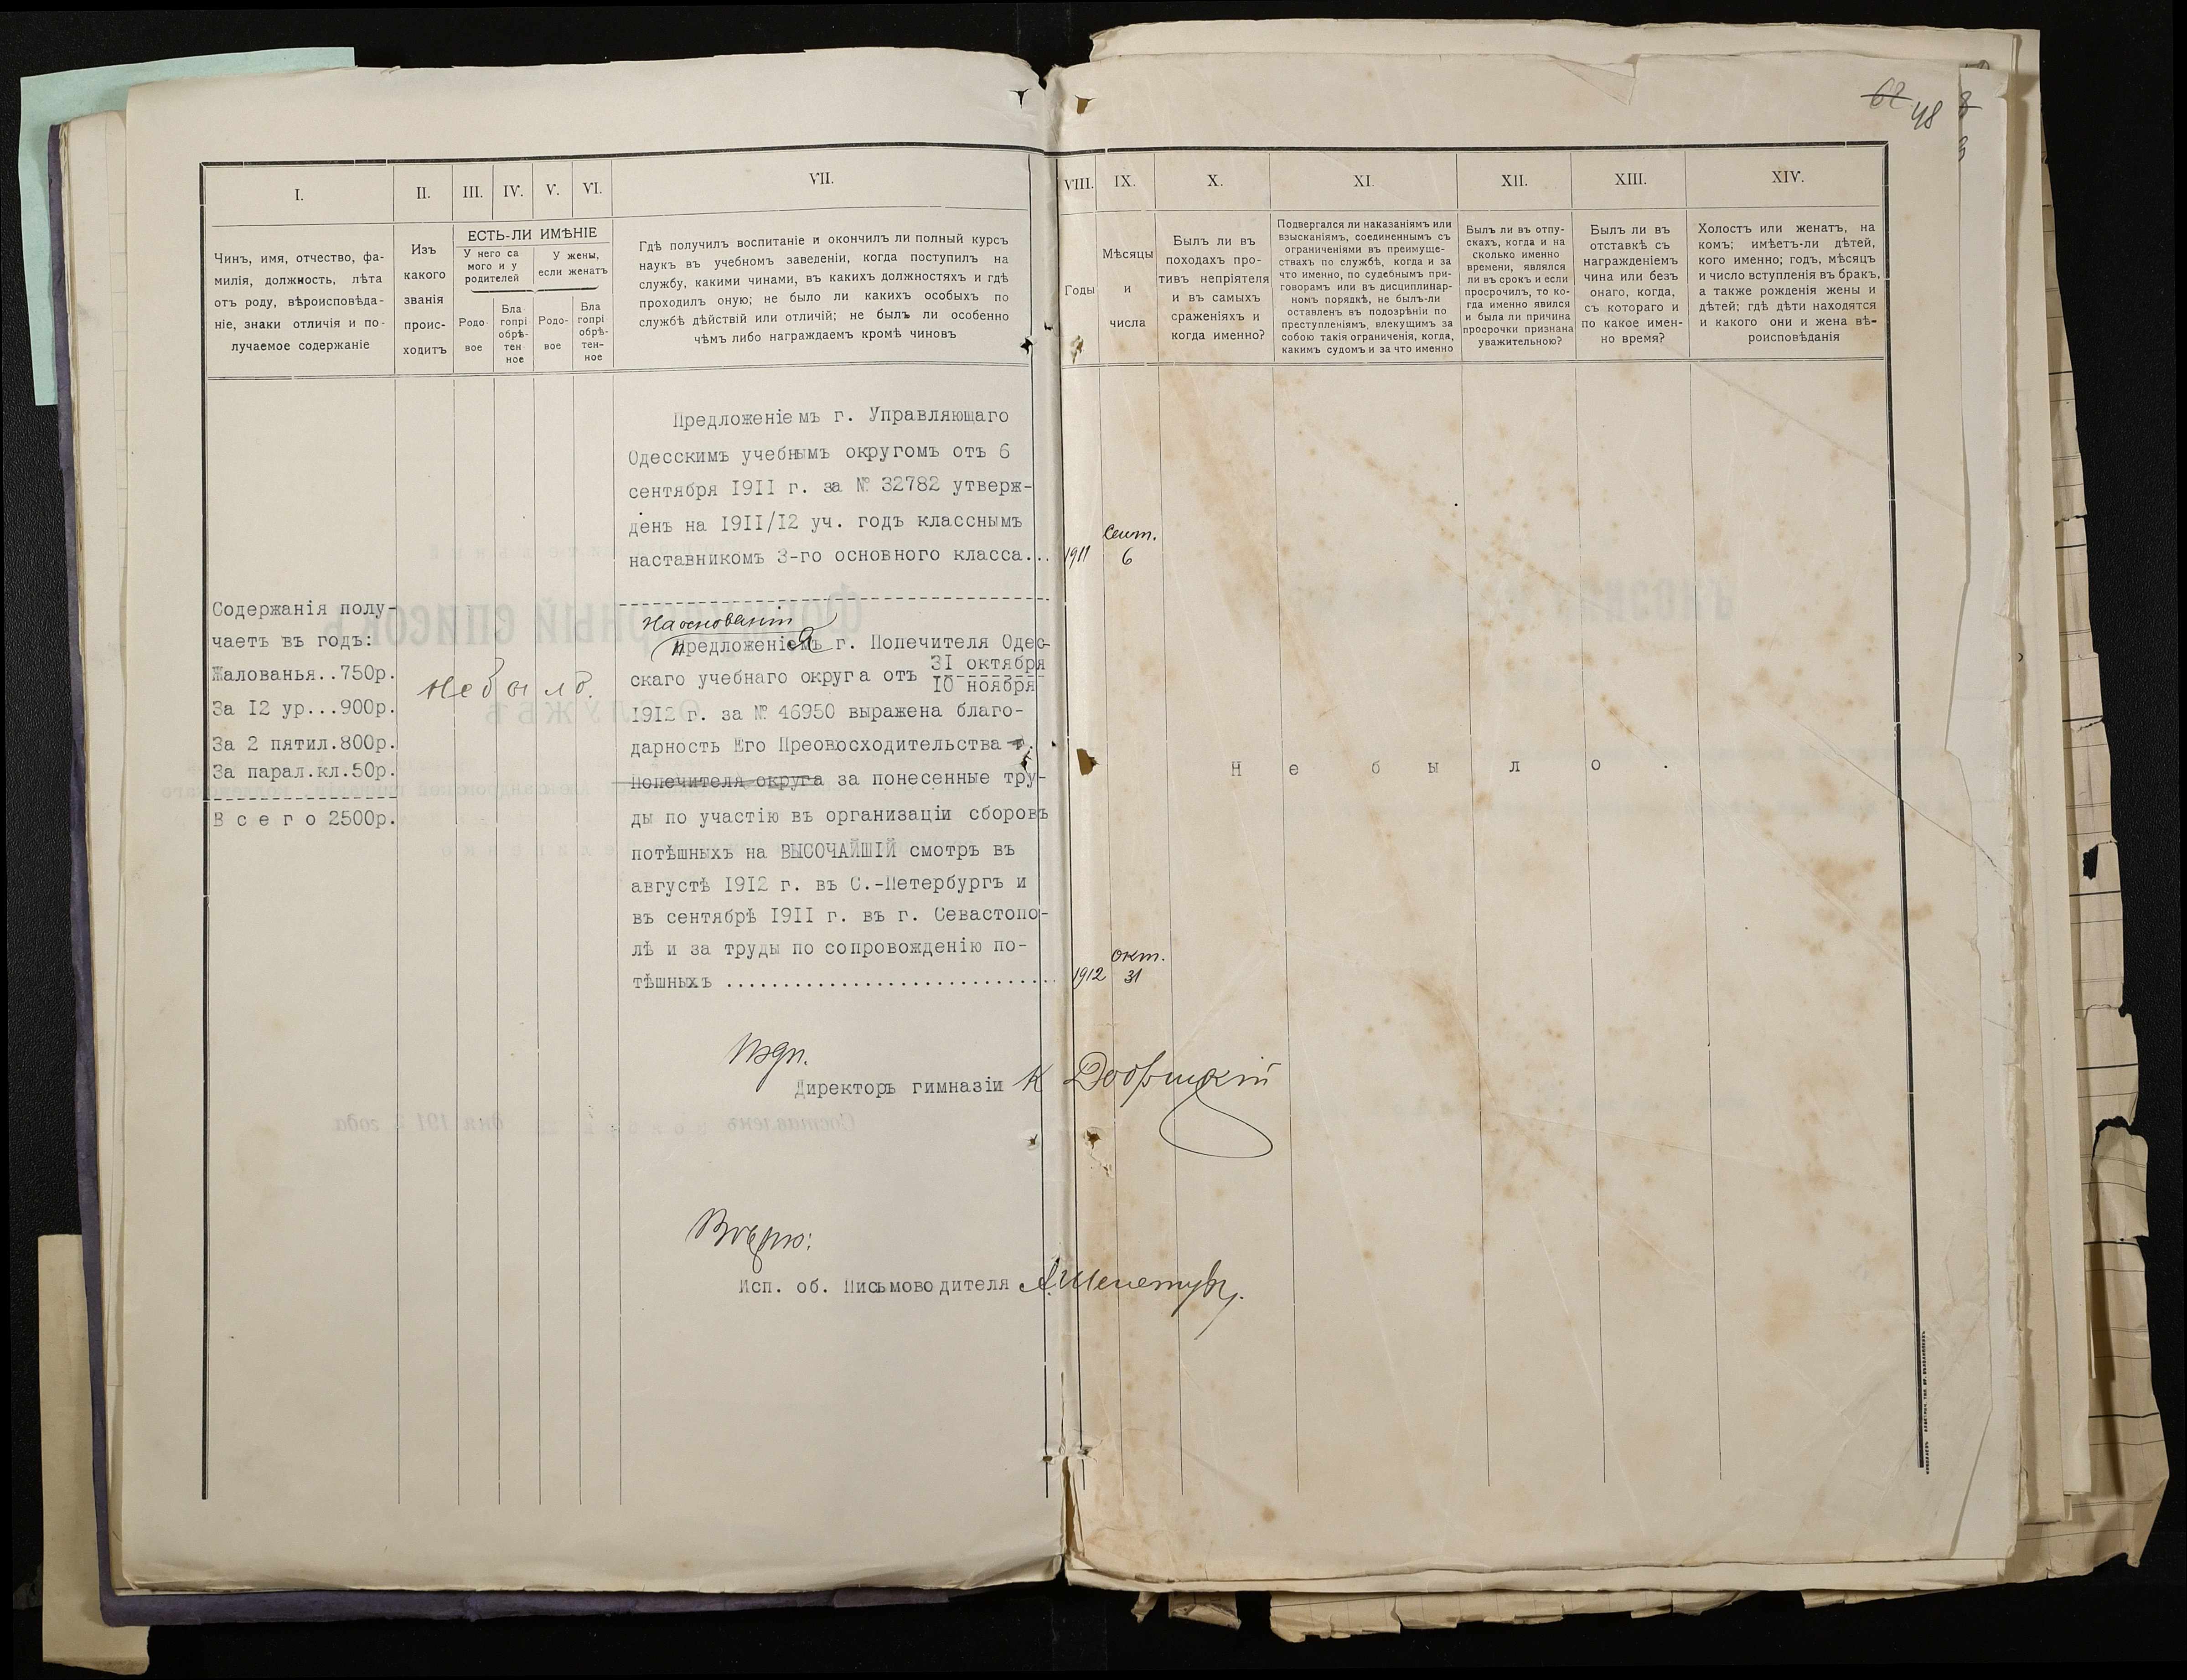 62 48
I. II. III. IV. V. VI. VII. VIII. IX. X. XI. XII. XIII. XIV.
Чинъ, имя, отчество, фа-
милія, должность, лѣта
отъ роду, вѣроисповѣда-
ніе, знаки отличія и по-
лучаемое содержаніе
Изъ
какого
званія
проис-
ходитъ
ЕСТЬ-ЛИ ИМѢНІЕ
У него са
мого и у
родителей
У жены,
если женатъ
Родо
вое
Бла
гопрі
обрѣ-
тен
ное
Родо-
вое
Бла
гопрі
обрѣ-
тен-
ное
Гдѣ получилъ воспитаніе и окончилъ ли полный курсъ
наукъ въ учебномъ заведеніи, когда поступилъ на
службу, какими чинами, въ какихъ должностяхъ и гдѣ
проходилъ оную; не было ли какихъ особыхъ по
службѣ дѣйствій или отличій; не былъ ли особенно
чѣмъ либо награждаемъ кромѣ чиновъ
Годы
Мѣсяцы
и
числа
Былъ ли въ
походахъ про-
тивъ непріятеля
и въ самыхъ
сраженіяхъ и
когда именно?
Подвергался ли наказаніямъ или
взысканіямъ, соединеннымъ съ
ограниченіями въ преимуще-
ствахъ по службѣ, когда и за
что именно, по судебнымъ при-
говорамъ или въ дисциплинар-
номъ порядкѣ, не былъ-ли
оставленъ въ подозрѣніи по
преступленіямъ, влекущимъ за
собою такія ограниченія, когда,
какимъ судомъ и за что именно
Былъ ли въ отпу-
скахъ, когда и на
сколько именно
времени, являлся
ли въ срокъ и если
просрочилъ, то ко-
гда именно явился
и была ли причина
просрочки признана
уважительною?
Былъ ли въ
отставкѣ съ
награжденіемъ
чина или безъ
онаго, когда,
съ котораго и
по какое имен-
но время?
Холостъ или женатъ, на
комъ; имѣетъ-ли дѣтей,
кого именно; годъ, мѣсяцъ
и число вступленія въ бракъ,
а также рожденія жены и
дѣтей; гдѣ дѣти находятся
и какого они и жена вѣ-
роисповѣданія
Содержанія полу-
чаетъ въ годъ:
Жалованья..750р.
За 12 ур...900р.
За 2 пятил.800р.
За парал.кл.50р.
Всего 2500р.
Не было.
Предложеніемъ г. Управляющаго
Одесскимъ учебнымъ округомъ отъ 6
сентября 1911 г. за № 32782 утверж-
денъ на 1911/12 уч. годъ класснымъ
наставникомъ 3-го основного класса...
1911 Сент. 6
На основаніи
Предложенія г. Попечителя Одес-
скаго учебнаго округа отъ 31 октября
10 ноября
1912 г. за № 46950 выражена благо-
дарность Его Превосходительства
Попечителя округа за понесенные тру-
ды по участію въ организаціи сборовъ
потѣшныхъ на ВЫСОЧАЙШІЙ смотръ въ
августѣ 1912 г. въ С.-Петербургъ и
въ сентябрѣ 1911 г. въ г. Севастопо-
лѣ и за труды по сопровожденію по-
тѣшныхъ ............................
1912 окт. 31
Не было.
Директоръ гимназіи К
Вѣрно:
Исп. об. Письмоводителя